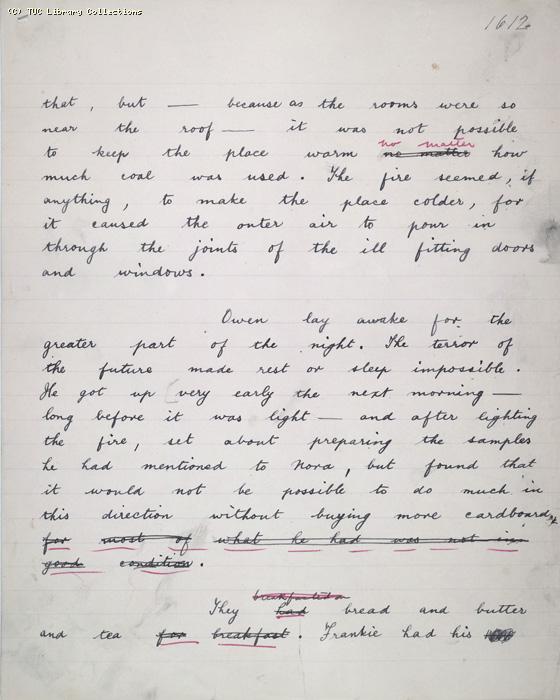 (C) TUC Library Collections
1612
that, but — because as the rooms were so
near the roof — it was not possible
no matter
to keep the place warm no matter how
much coal was used. The fire seemed, if
anything, to make the place colder, for
it caused the outer air to pour in
through the joints of the ill fitting doors
and windows.
Owen lay awake for the
greater part of the night. The terror of
the future made rest or sleep impossible.
He got up very early the next morning —
long before it was light — and after lighting
the fire, set about preparing the samples
he had mentioned to Nora, but found that
it would not be possible to do much in
this direction without buying more cardboard,
for most of what he had was not in
good condition.
breakfasted on
They had bread and butter
and tea for breakfast. Frankie had his